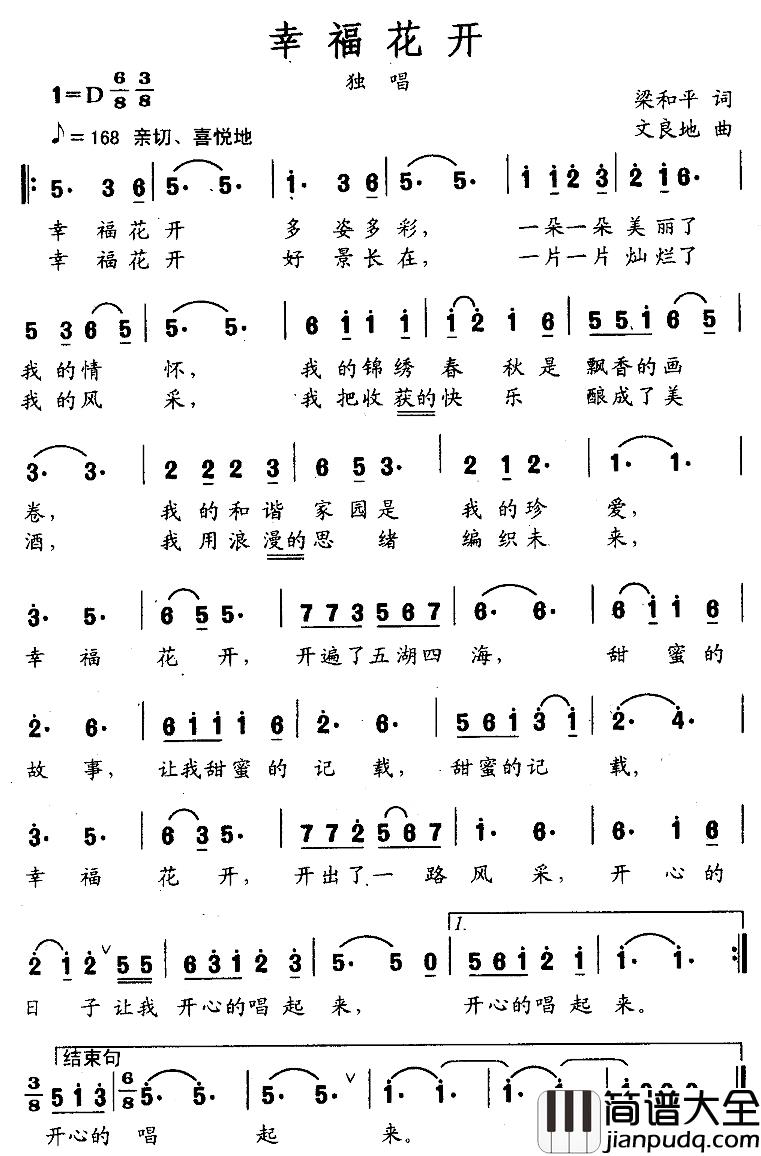 幸福花开
独唱
1=D 6/8 3/8
梁和平 词
♪=168 亲切、喜悦地
文良地 曲
5· 3 6 | 5· 5· | i· 3 6 | 5· 5· | i i 2 3 | 2 i 6· |
幸 福花开 多 姿多彩, 一朵一朵美丽了
幸 福花开 好 景长在, 一片一片灿烂了
5 3 6 5 | 5· 5· | 6 i i i | i 2 i 6 | 5 5 i 6 5 |
我的情 怀, 我的锦绣春 秋是飘香的画
我的风 采, 我把收获的快 乐 酿成了美
3· 3· | 2 2 2 3 | 6 5 3· | 2 1 2· | 1· 1· |
卷, 我的和谐家园是 我的珍 爱,
酒, 我用浪漫的思 绪 编织未 来,
3· 5· | 6 5 5· | 7 7 3 5 6 7 | 6· 6· | 6 i i 6 |
幸 福 花 开, 开遍了五湖四 海, 甜 蜜的
2· 6· | 6 i i i 6 | 2· 6· | 5 6 i 3 i | 2· 4· |
故 事, 让我甜蜜的记 载, 甜蜜的记 载,
3· 5· | 6 3 5· | 7 7 2 5 6 7 | i· 6· | i· i 6 |
幸 福 花 开, 开出了一 路风 采, 开 心的
1.
2 i 2 ∨ 5 5 | 6 3 i 2 3 | 5· 5 0 | 5 6 i 2 i | i· i· :|
日 子让我 开心的唱起来, 开心的唱起来。
结束句
3/8 5 i 3 | 6/8 5· 5· | 5· 5· ∨ | i· i· | i· i· | i 0 0 0
开心的 唱 起 来。
简谱大全
jianpudq.com